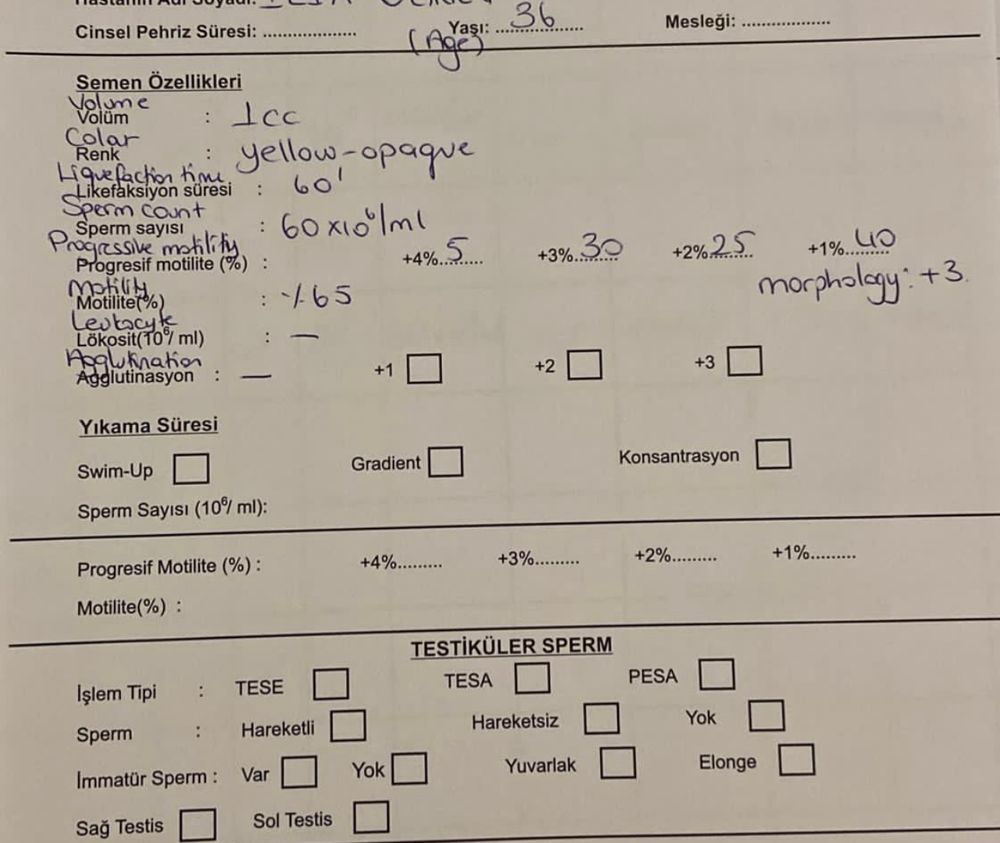 Cinsel Pehriz Süresi: ................... Yaşı: ...36......... Mesleği: ..................
(Age)
Semen Özellikleri
Volume
Volüm : 1cc
Color
Renk : yellow-opaque
Liquefaction time
Likefaksiyon süresi : 60'
Sperm count
Sperm sayısı : 60x10⁶/ml
Progressive motility
Progresif motilite (%) : +4%..5...... +3%..30...... +2%..25...... +1%..40......
morphology: +3.
Motility
Motilite(%) : %65
Leukocyte
Lökosit(10⁶/ ml) : —
Agglutination
Agglutinasyon : — +1 +2 +3
Yıkama Süresi
Swim-Up Gradient Konsantrasyon
Sperm Sayısı (10⁶/ ml):
Progresif Motilite (%) : +4%......... +3%......... +2%......... +1%.........
Motilite(%) :
TESTİKÜLER SPERM
İşlem Tipi : TESE TESA PESA
Sperm : Hareketli Hareketsiz Yok
İmmatür Sperm : Var Yok Yuvarlak Elonge
Sağ Testis Sol Testis